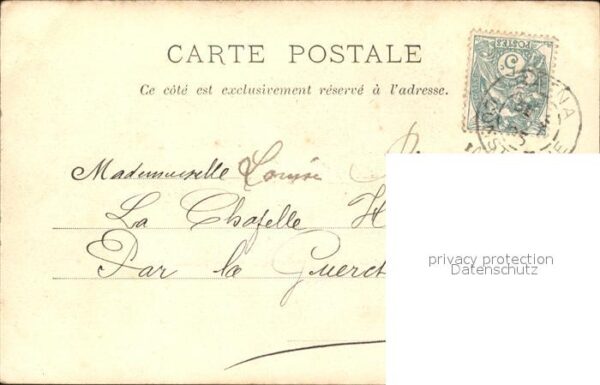 CARTE POSTALE
Ce côté est exclusivement réservé à l'adresse.
POSTES
5
Mademoiselle Louise
La Chapelle H
Par la Guerch
privacy protection
Datenschutz